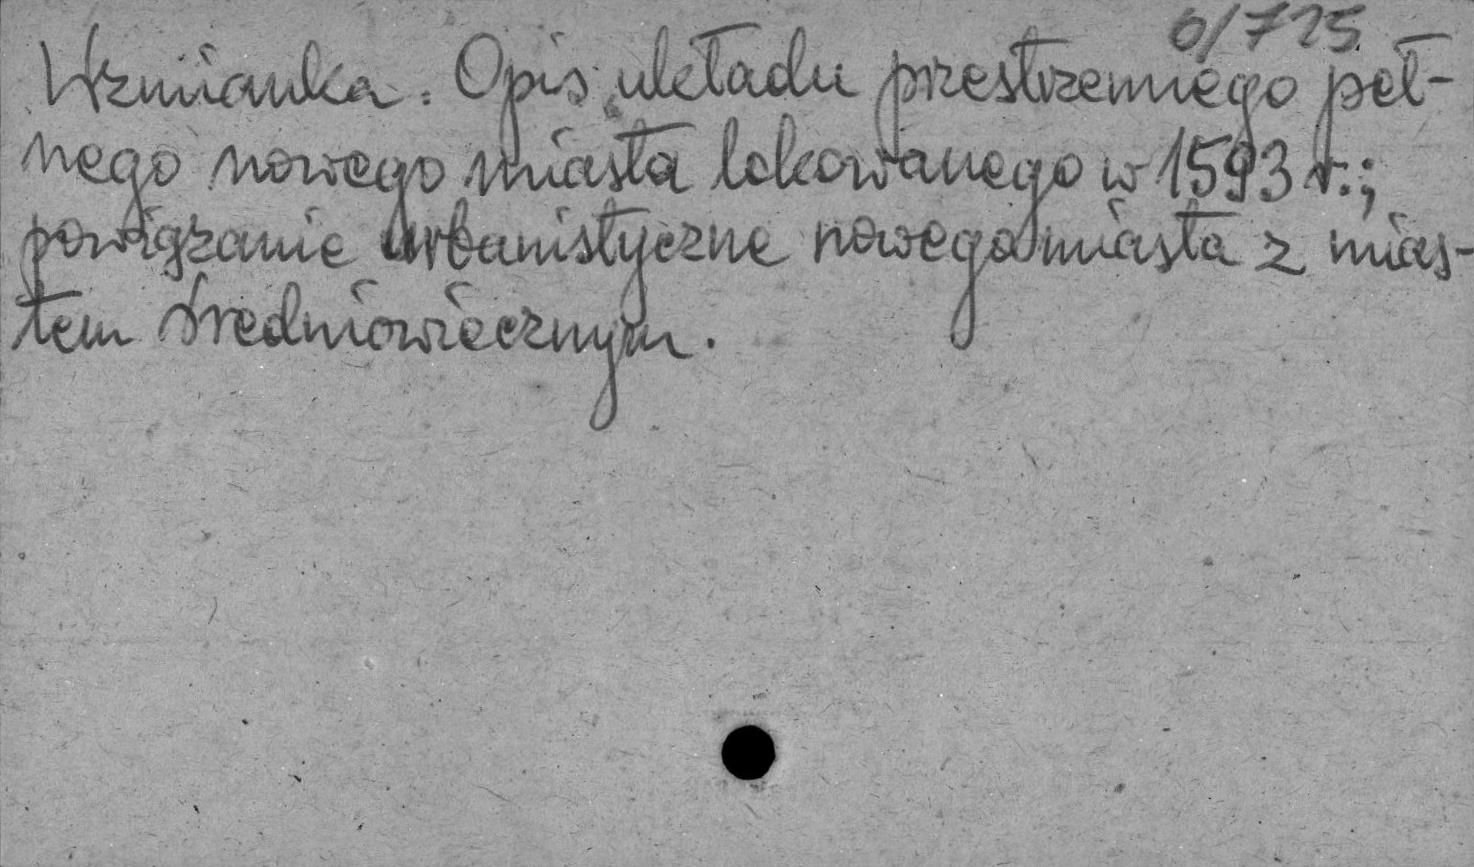 6/725
Wzmianka. Opis układu przestrzennego peł-
nego nowego miasta lokowanego w 1593 r.;
powiązanie urbanistyczne nowego miasta z mias-
tem średniowiecznym.